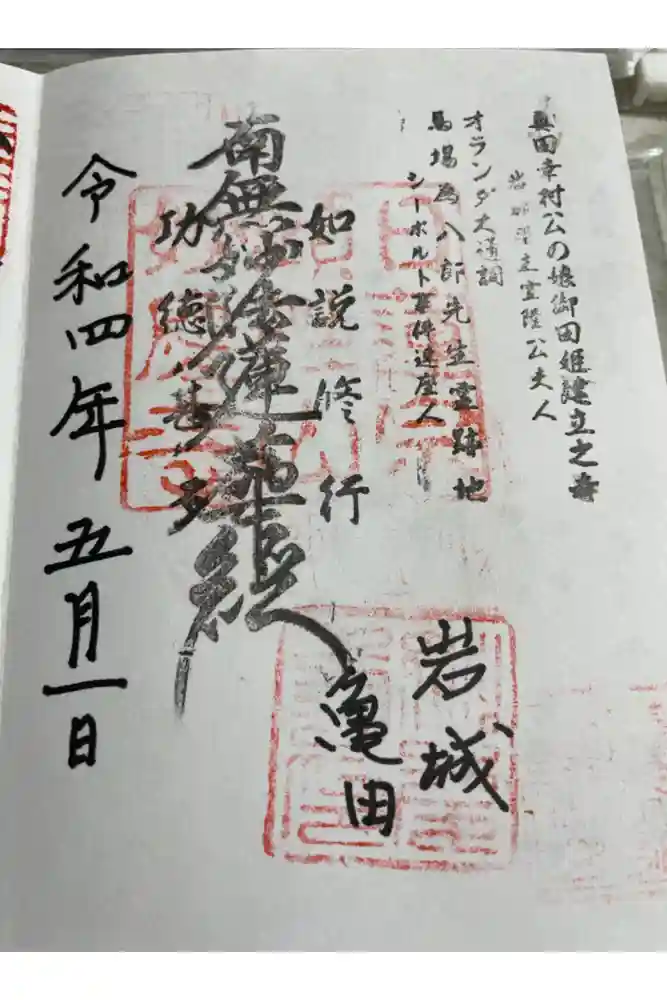 真田幸村公の娘御田姫建立之寺
岩城宣隆公夫人
オランダ大通詞
馬場為八郎先生霊跡地
シーボルト事件連座人
如説修行
南無妙法蓮華経
功徳甚多
岩城
亀田
令和四年五月一日